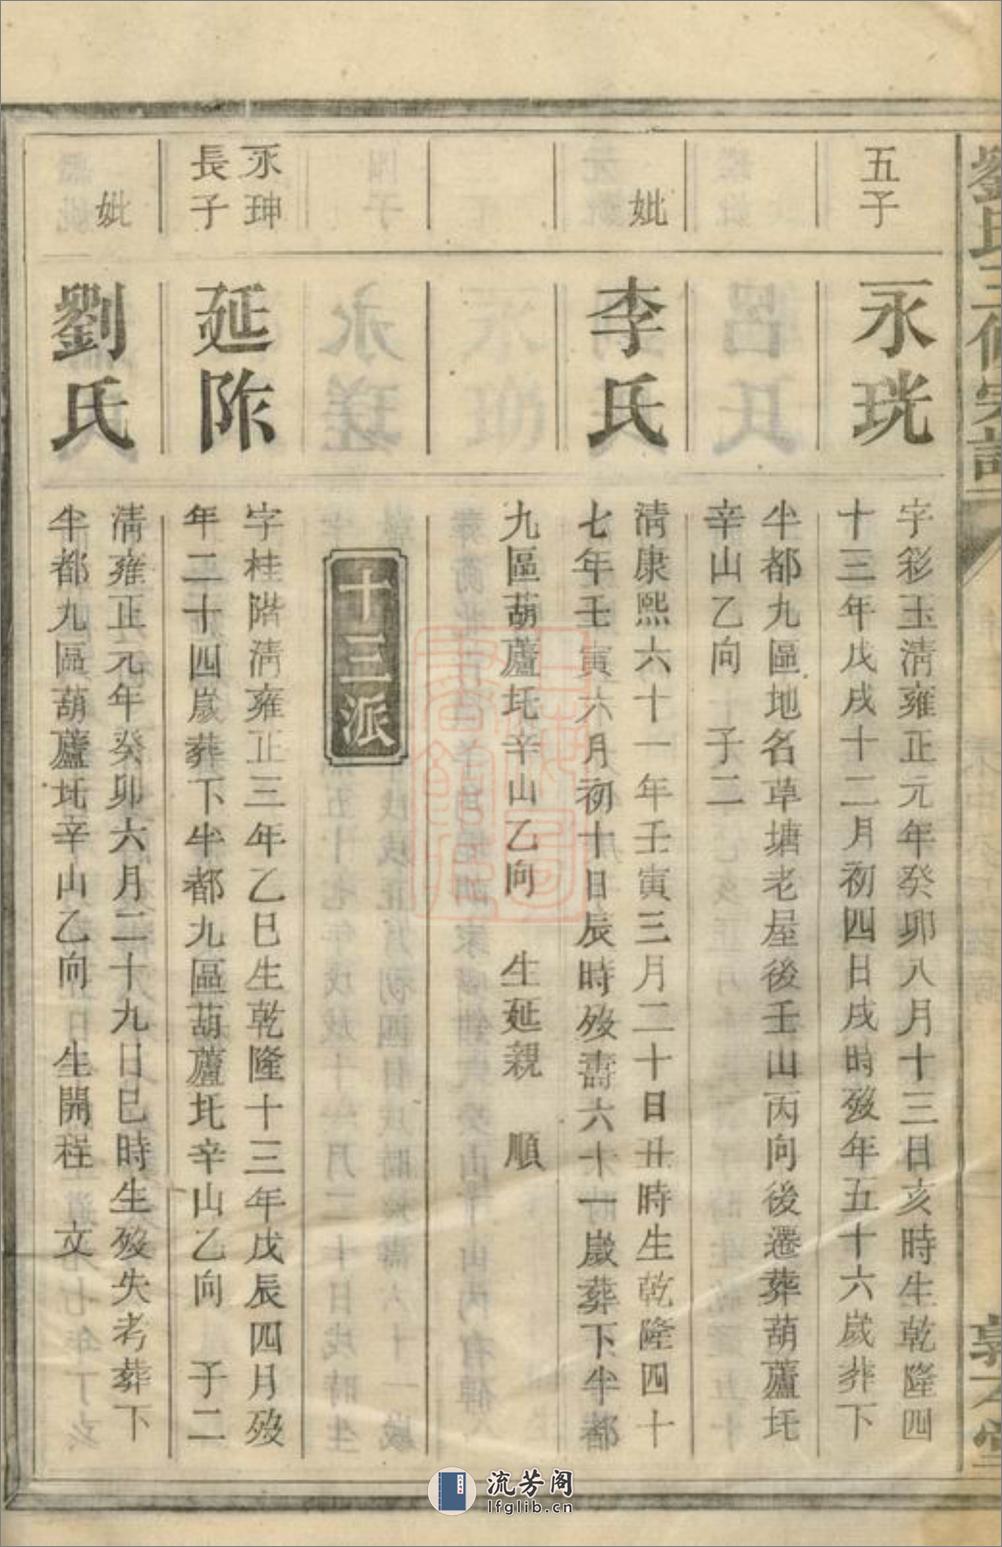 五子
永珖
字彩玉清雍正元年癸卯八月十三日亥時生乾隆四
十三年戊戌十二月初四日戌時歿年五十六歲葬下
半都九區地名草塘老屋後壬山丙向後遷葬葫蘆圫
辛山乙向 子二
妣
李氏
清康熙六十一年壬寅三月二十日丑時生乾隆四十
七年壬寅六月初十日辰時歿壽六十一歲葬下半都
九區葫蘆圫辛山乙向 生延親 順
十三派
永珅
長子
延阼
字桂階清雍正三年乙巳生乾隆十三年戊辰四月歿
年二十四歲葬下半都九區葫蘆圫辛山乙向 子二
妣
劉氏
清雍正元年癸卯六月二十九日巳時生歿失考葬下
半都九區葫蘆圫辛山乙向 生開程 文
流芳阁
lfglib.cn